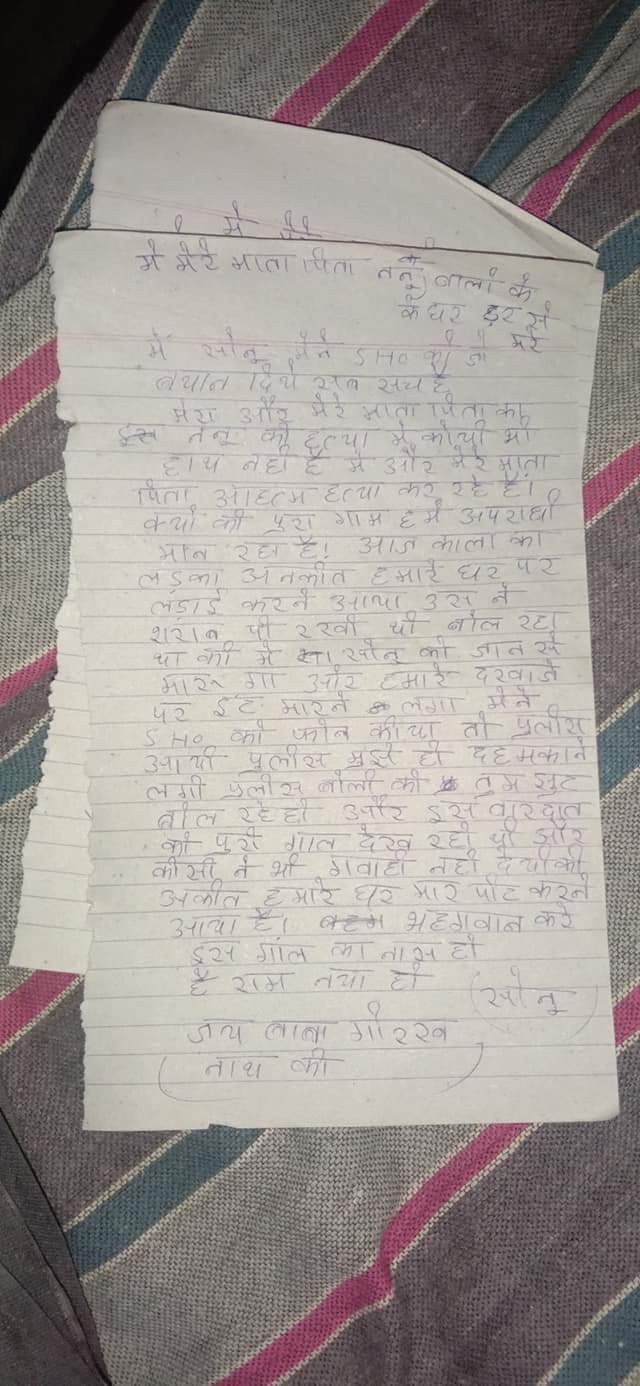 में मेरे
मे मेरे माता पिता तनू वालो के
के घर डर से
मेरे
में सोनू मैने SHO को जो
बयान दिये सब सच है
मेरा और मेरे माता पिता का
इस तनू की हत्या मे कोयी भी
हाथ नही है मे और मेरे माता
पिता आहत्म हत्या कर रहे है।
क्यो की पुरा गाम हमे अपराधी
मान रहा है! आज काला का
लडका अनकीत हमारे घर पर
लडाई करने आया उस ने
शराब पी रखी थी बोल रहा
था की मे सोनू को जान से
मारू गा और हमारे दरवाजे
पर ईट मारने लगा मेने
SHO को फोन कीया तो पुलीस
आयी पुलीस मुझे ही दहमकाने
लगी पुलीस बोली की तुम झुट
बोल रहे हो और इस वारदात
को पुरी गाल देख रही थी और
कीसी ने भी गवाही नही देयी की
अकीत हमारे घर मार पीट करने
आया है। भहगवान करे
इस गांल का नास हो
है राम नया हो
(सोनू)
जय बाबा गोरख
नाथ की